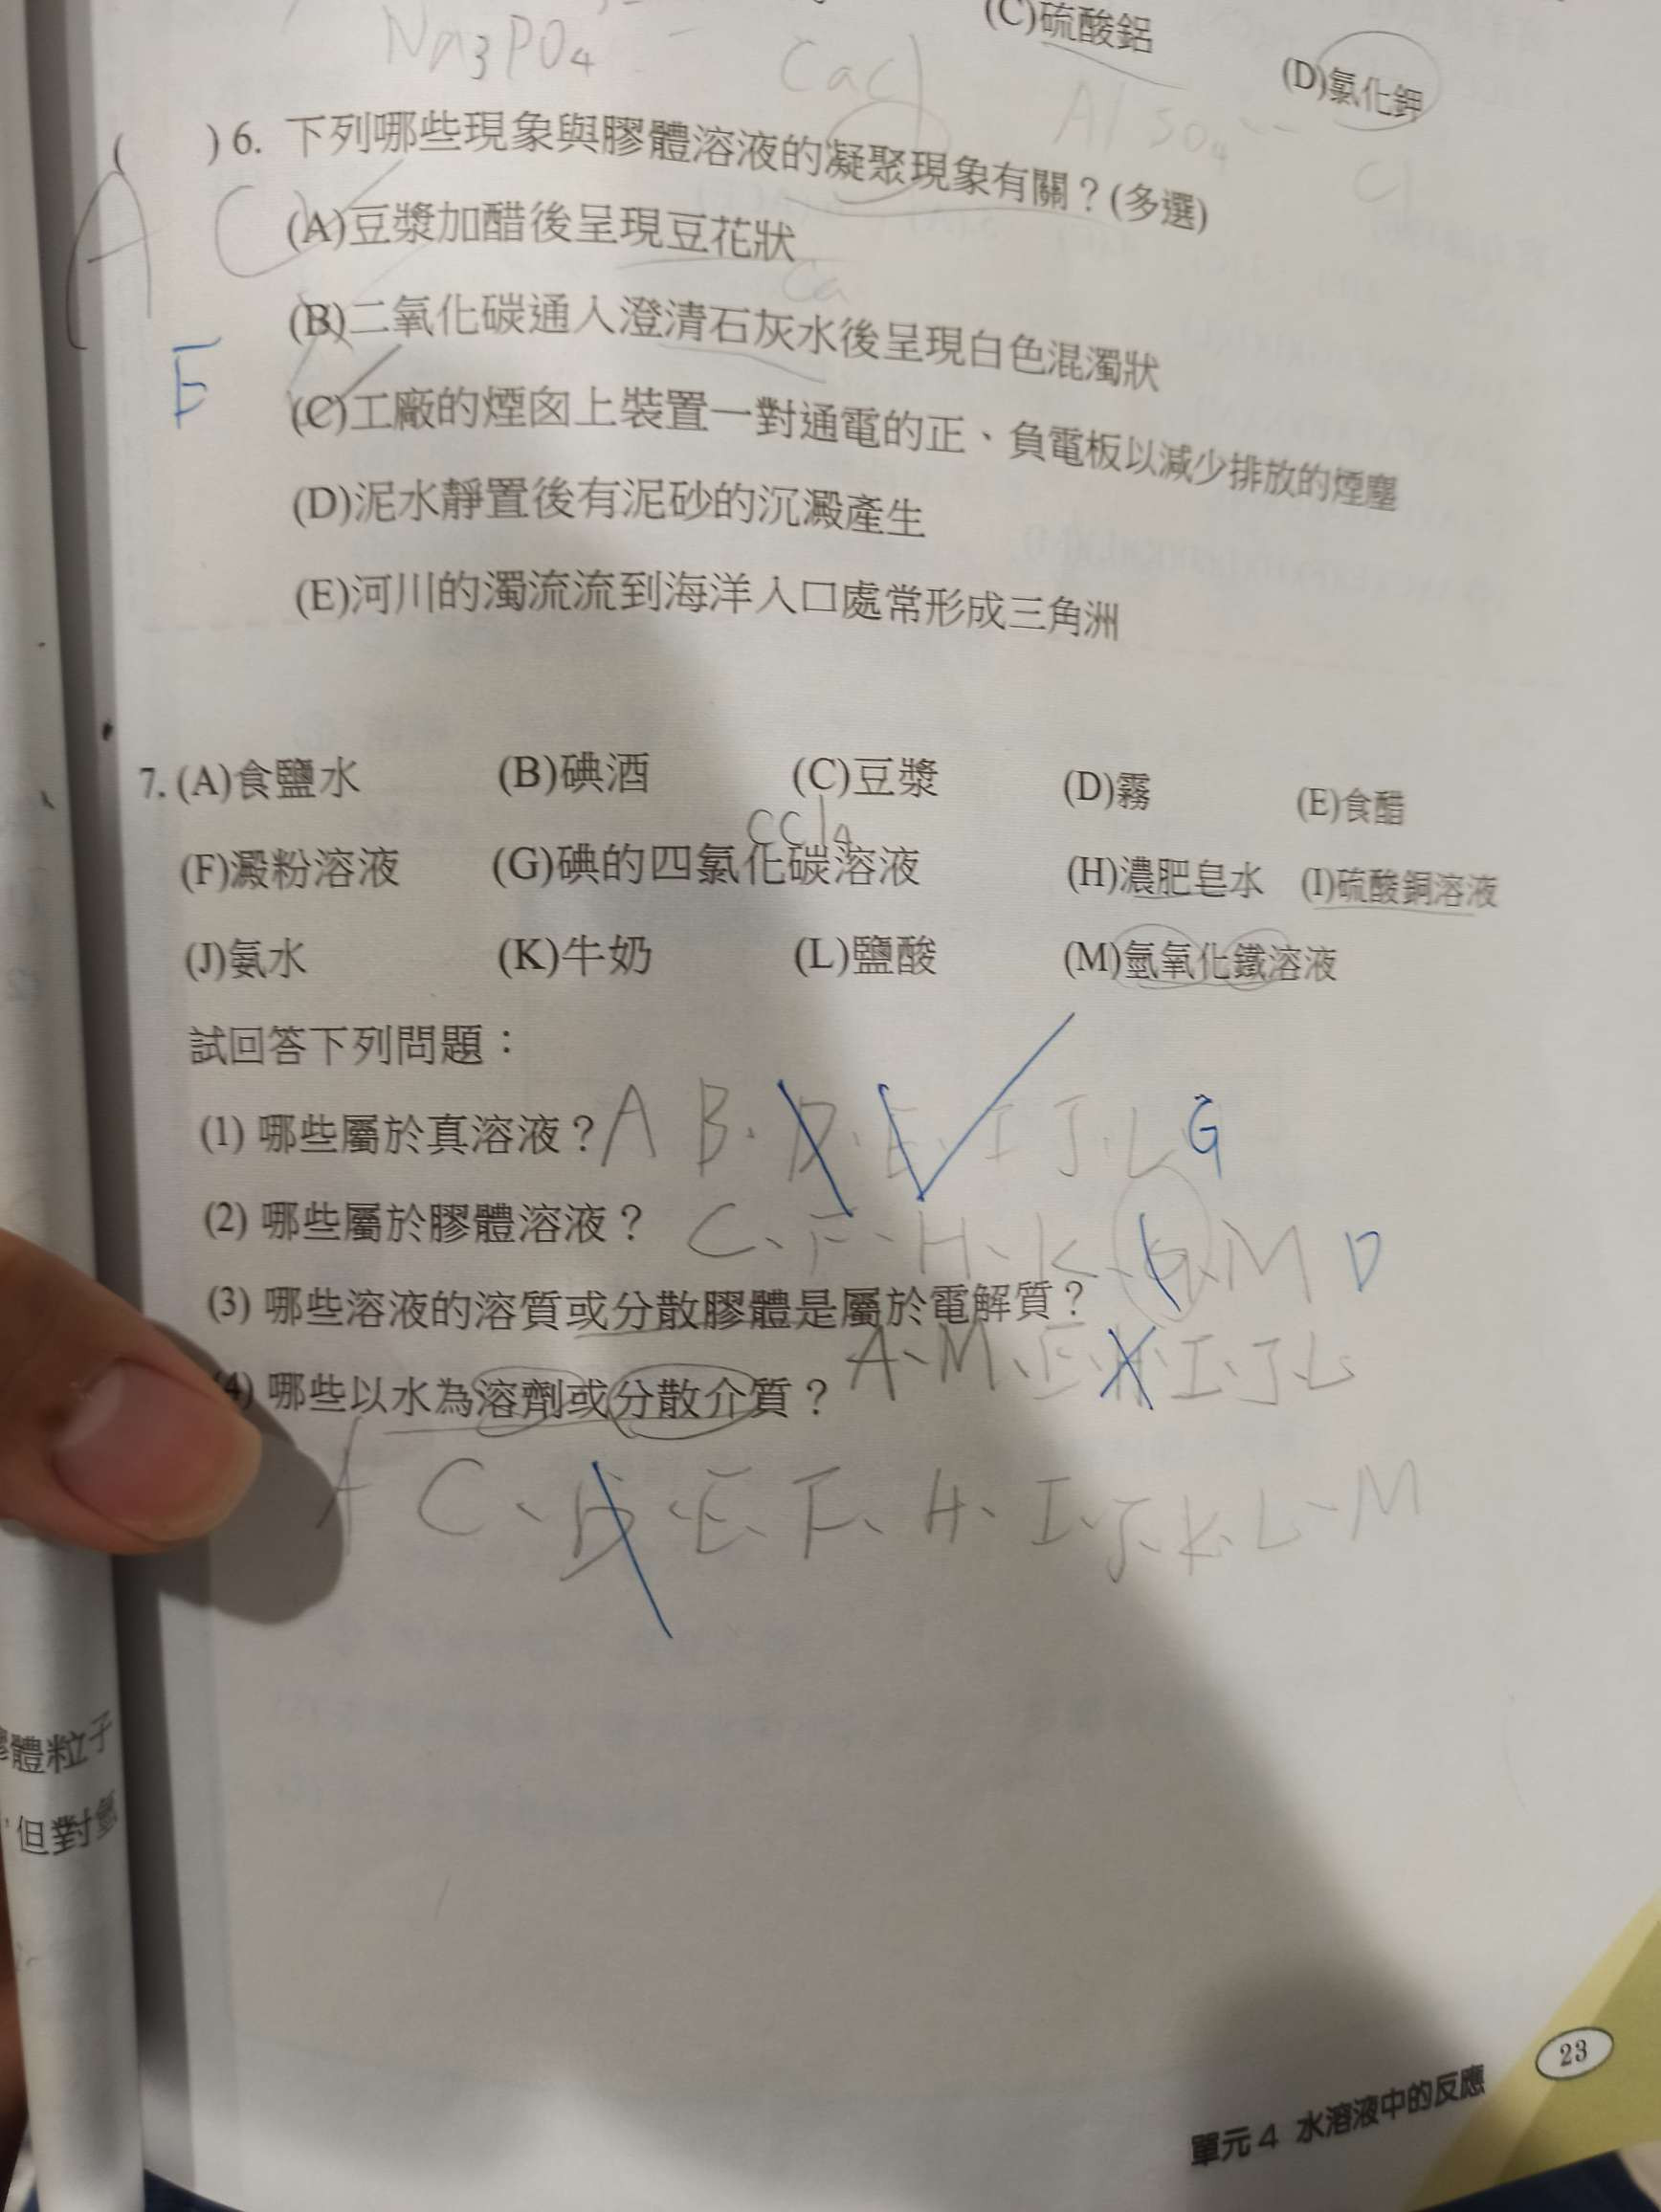 Na3PO4
(C)硫酸鋁
(D)氯化鉀
CaCl
Al SO4
Cl
( )6. 下列哪些現象與膠體溶液的凝聚現象有關？(多選)
A C
E
(A)豆漿加醋後呈現豆花狀
Ca
(B)二氧化碳通入澄清石灰水後呈現白色混濁狀
(C)工廠的煙囪上裝置一對通電的正、負電板以減少排放的煙塵
(D)泥水靜置後有泥砂的沉澱產生
(E)河川的濁流流到海洋入口處常形成三角洲
7. (A)食鹽水 (B)碘酒 (C)豆漿 (D)霧 (E)食醋
CCl4
(F)澱粉溶液 (G)碘的四氯化碳溶液 (H)濃肥皂水 (I)硫酸銅溶液
(J)氨水 (K)牛奶 (L)鹽酸 (M)氫氧化鐵溶液
試回答下列問題：
(1) 哪些屬於真溶液？A B、D、E、I J、L G
(2) 哪些屬於膠體溶液？ C、F、H、K、G、M D
(3) 哪些溶液的溶質或分散膠體是屬於電解質？
A、M、E、H、I、J、L
(4) 哪些以水為溶劑或分散介質？
A C、D、E、F、H、I、J、K、L、M
膠體粒子
，但對氫
單元4 水溶液中的反應
23